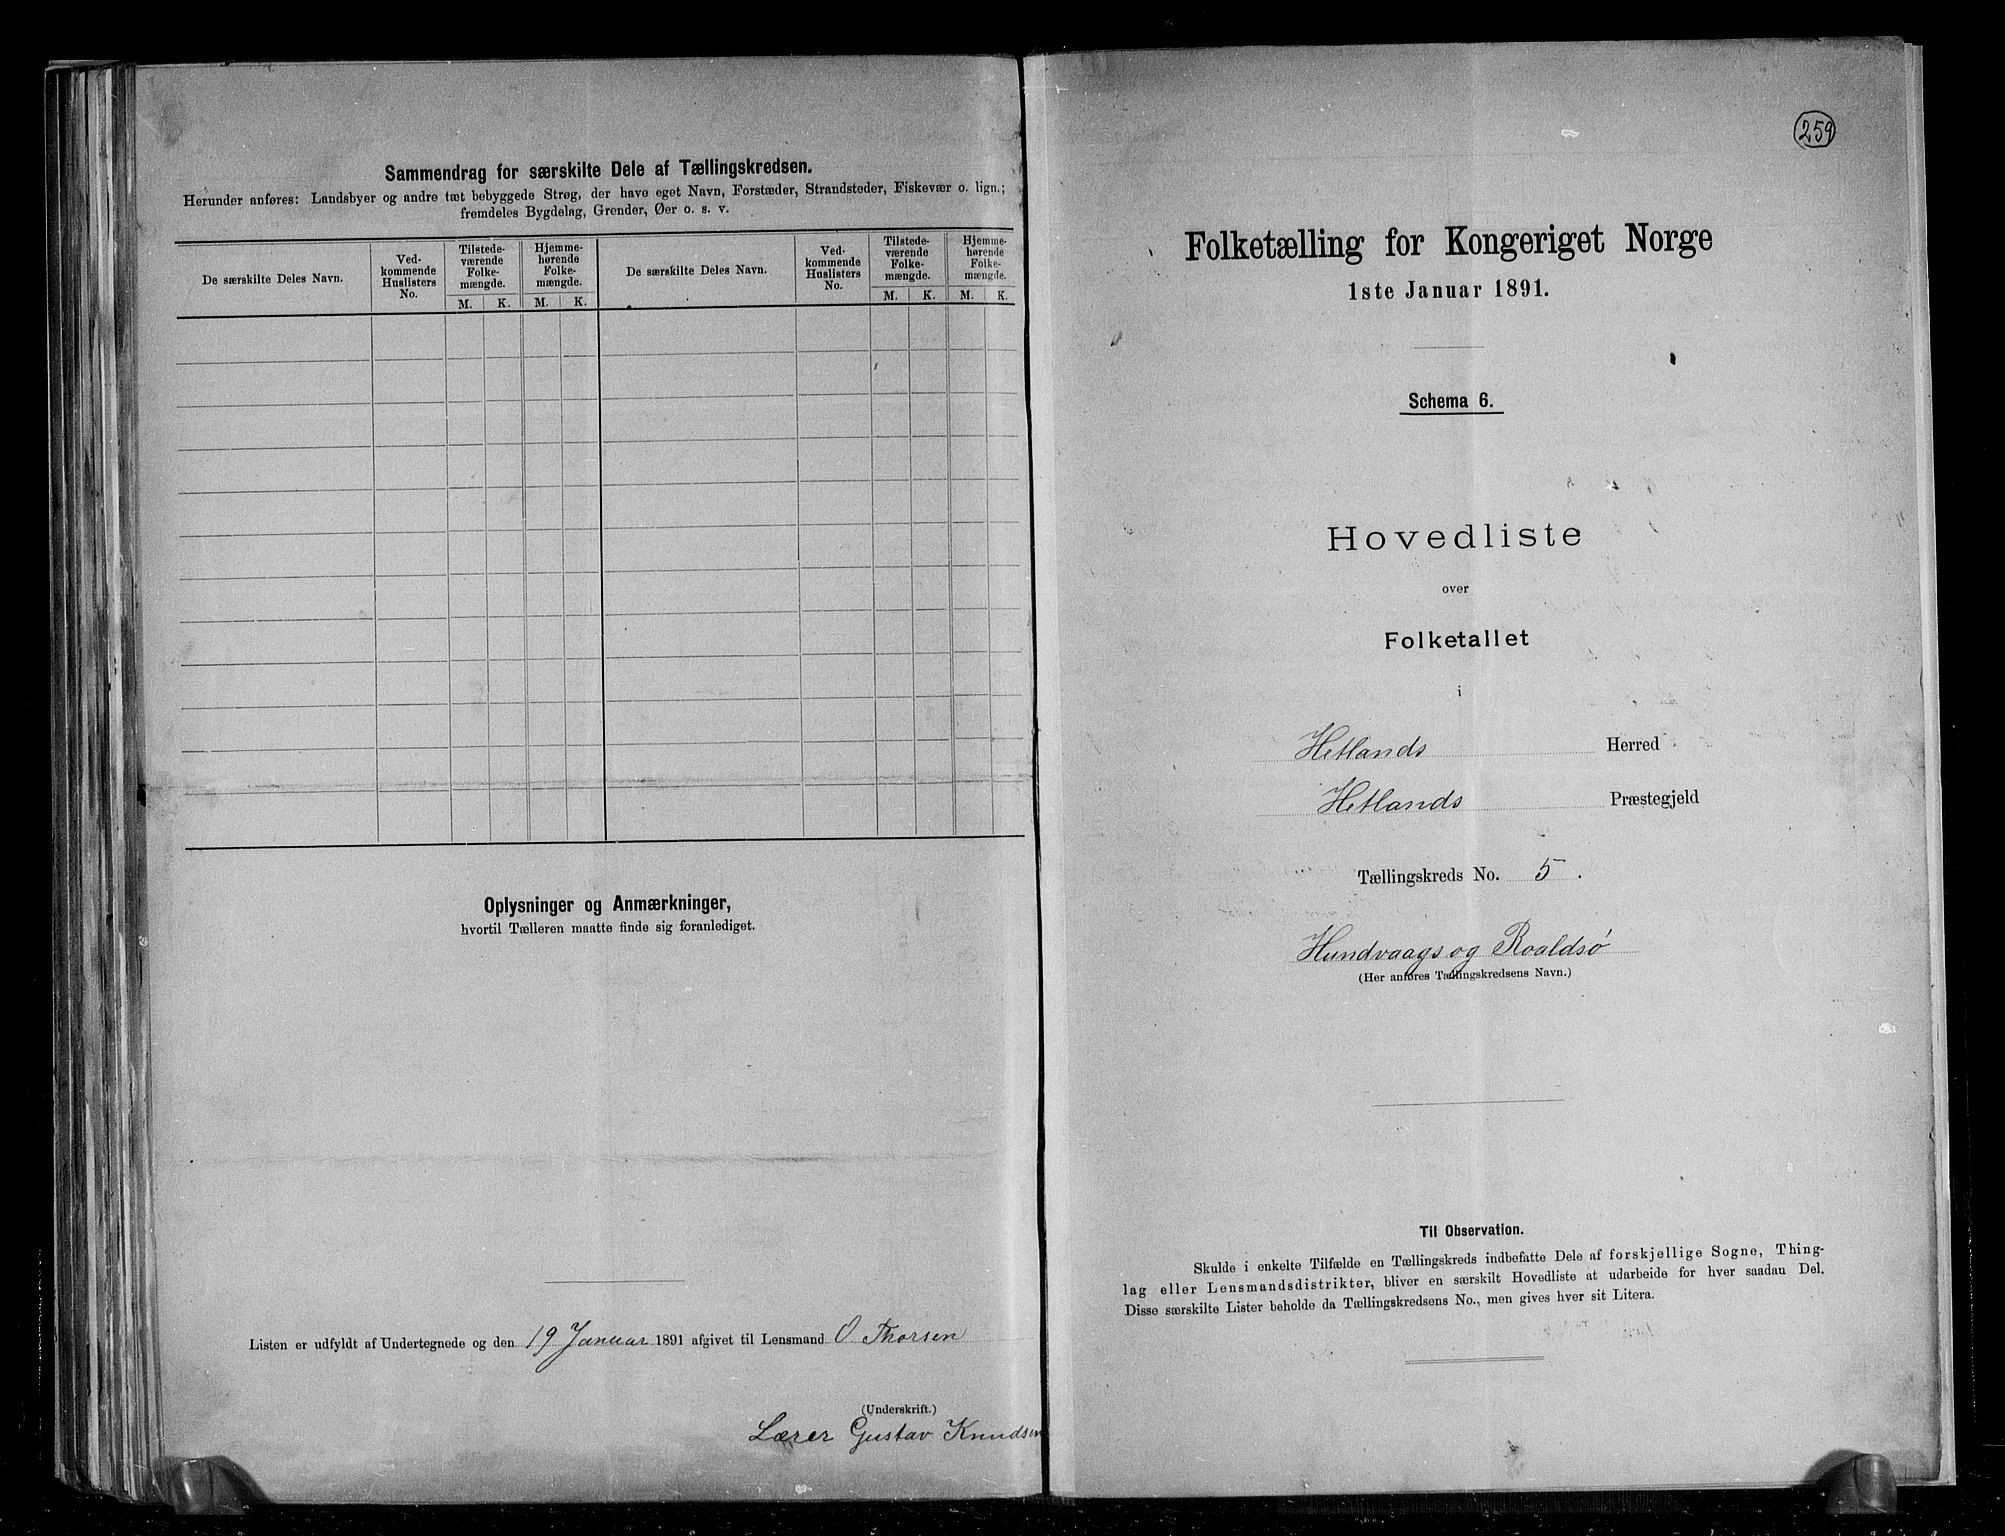 Sammendrag for særskilte Dele af Tællingskredsen.
Herunder anføres: Landsbyer og andre tæt bebyggede Strøg, der have eget Navn, Forstæder, Strandsteder, Fiskevær o. lign.;
fremdeles Bygdelag, Grender, Øer o. s. v.
De særskilte Deles Navn.
Ved-
kommende
Huslisters
No.
Tilstede-
værende
Folke-
mængde.
Hjemme-
hørende
Folke-
mængde.
M. K. M. K.
De særskilte Deles Navn.
Ved-
kommende
Huslisters
No.
Tilstede-
værende
Folke-
mængde.
Hjemme-
hørende
Folke-
mængde.
M. K. M. K.
Oplysninger og Anmærkninger,
hvortil Tælleren maatte finde sig foranlediget.
Listen er udfyldt af Undertegnede og den 19 Januar 1891 afgivet til Lensmand O Thorsen
(Underskrift.)
Lærer Gustav Knudsen
259
Folketælling for Kongeriget Norge
1ste Januar 1891.
Schema 6.
Hovedliste
over
Folketallet
i
Hetlands Herred
Hetlands Præstegjeld
Tællingskreds No. 5.
Hundvaags og Roaldsø
(Her anføres Tællingskredsens Navn.)
Til Observation.
Skulde i enkelte Tilfælde en Tællingskreds indbefatte Dele af forskjellige Sogne, Thing-
lag eller Lensmandsdistrikter, bliver en særskilt Hovedliste at udarbeide for hver saadan Del.
Disse særskilte Lister beholde da Tællingskredsens No., men gives hver sit Litera.